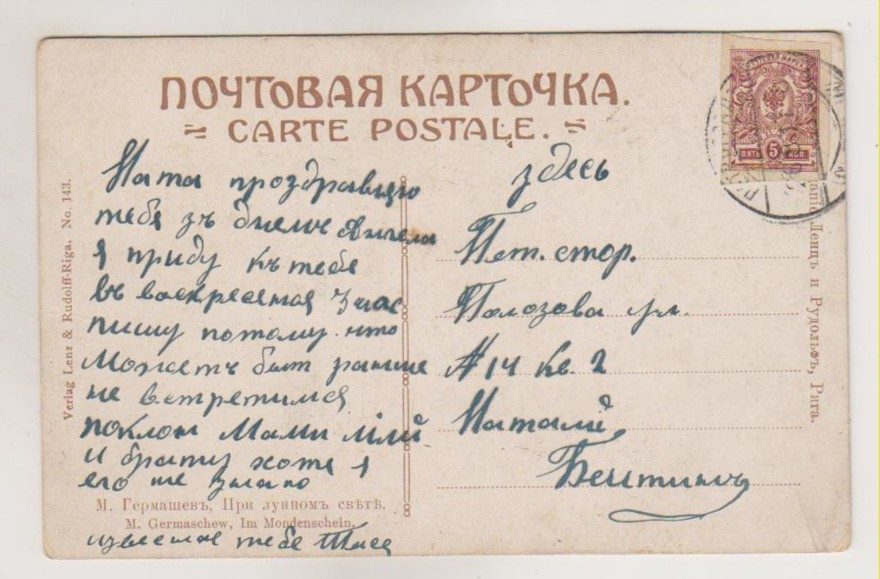 ПОЧТОВАЯ КАРТОЧКА.
CARTE POSTALE.
Ната проздравлю
тебя зъ днемъ Ангела
я приду къ тебе
въ воскресенья 3 час
пишу потому что
Можетъ быт ранше
не встретимся
поклон Мами
и брату хотя я
его не знаю
тебе Тася
здесь
Пет. стор.
Полозова ул.
№ 14 кв. 2
Наталiи
М. Гермашевъ, При лунномъ свѣтѣ.
M. Germaschew, Im Mondenschein.
Verlag Lenz & Rudolff-Riga. No. 143.
Ленцъ и Рудольфъ, Рига.
5
ПЯТЬ КОП.